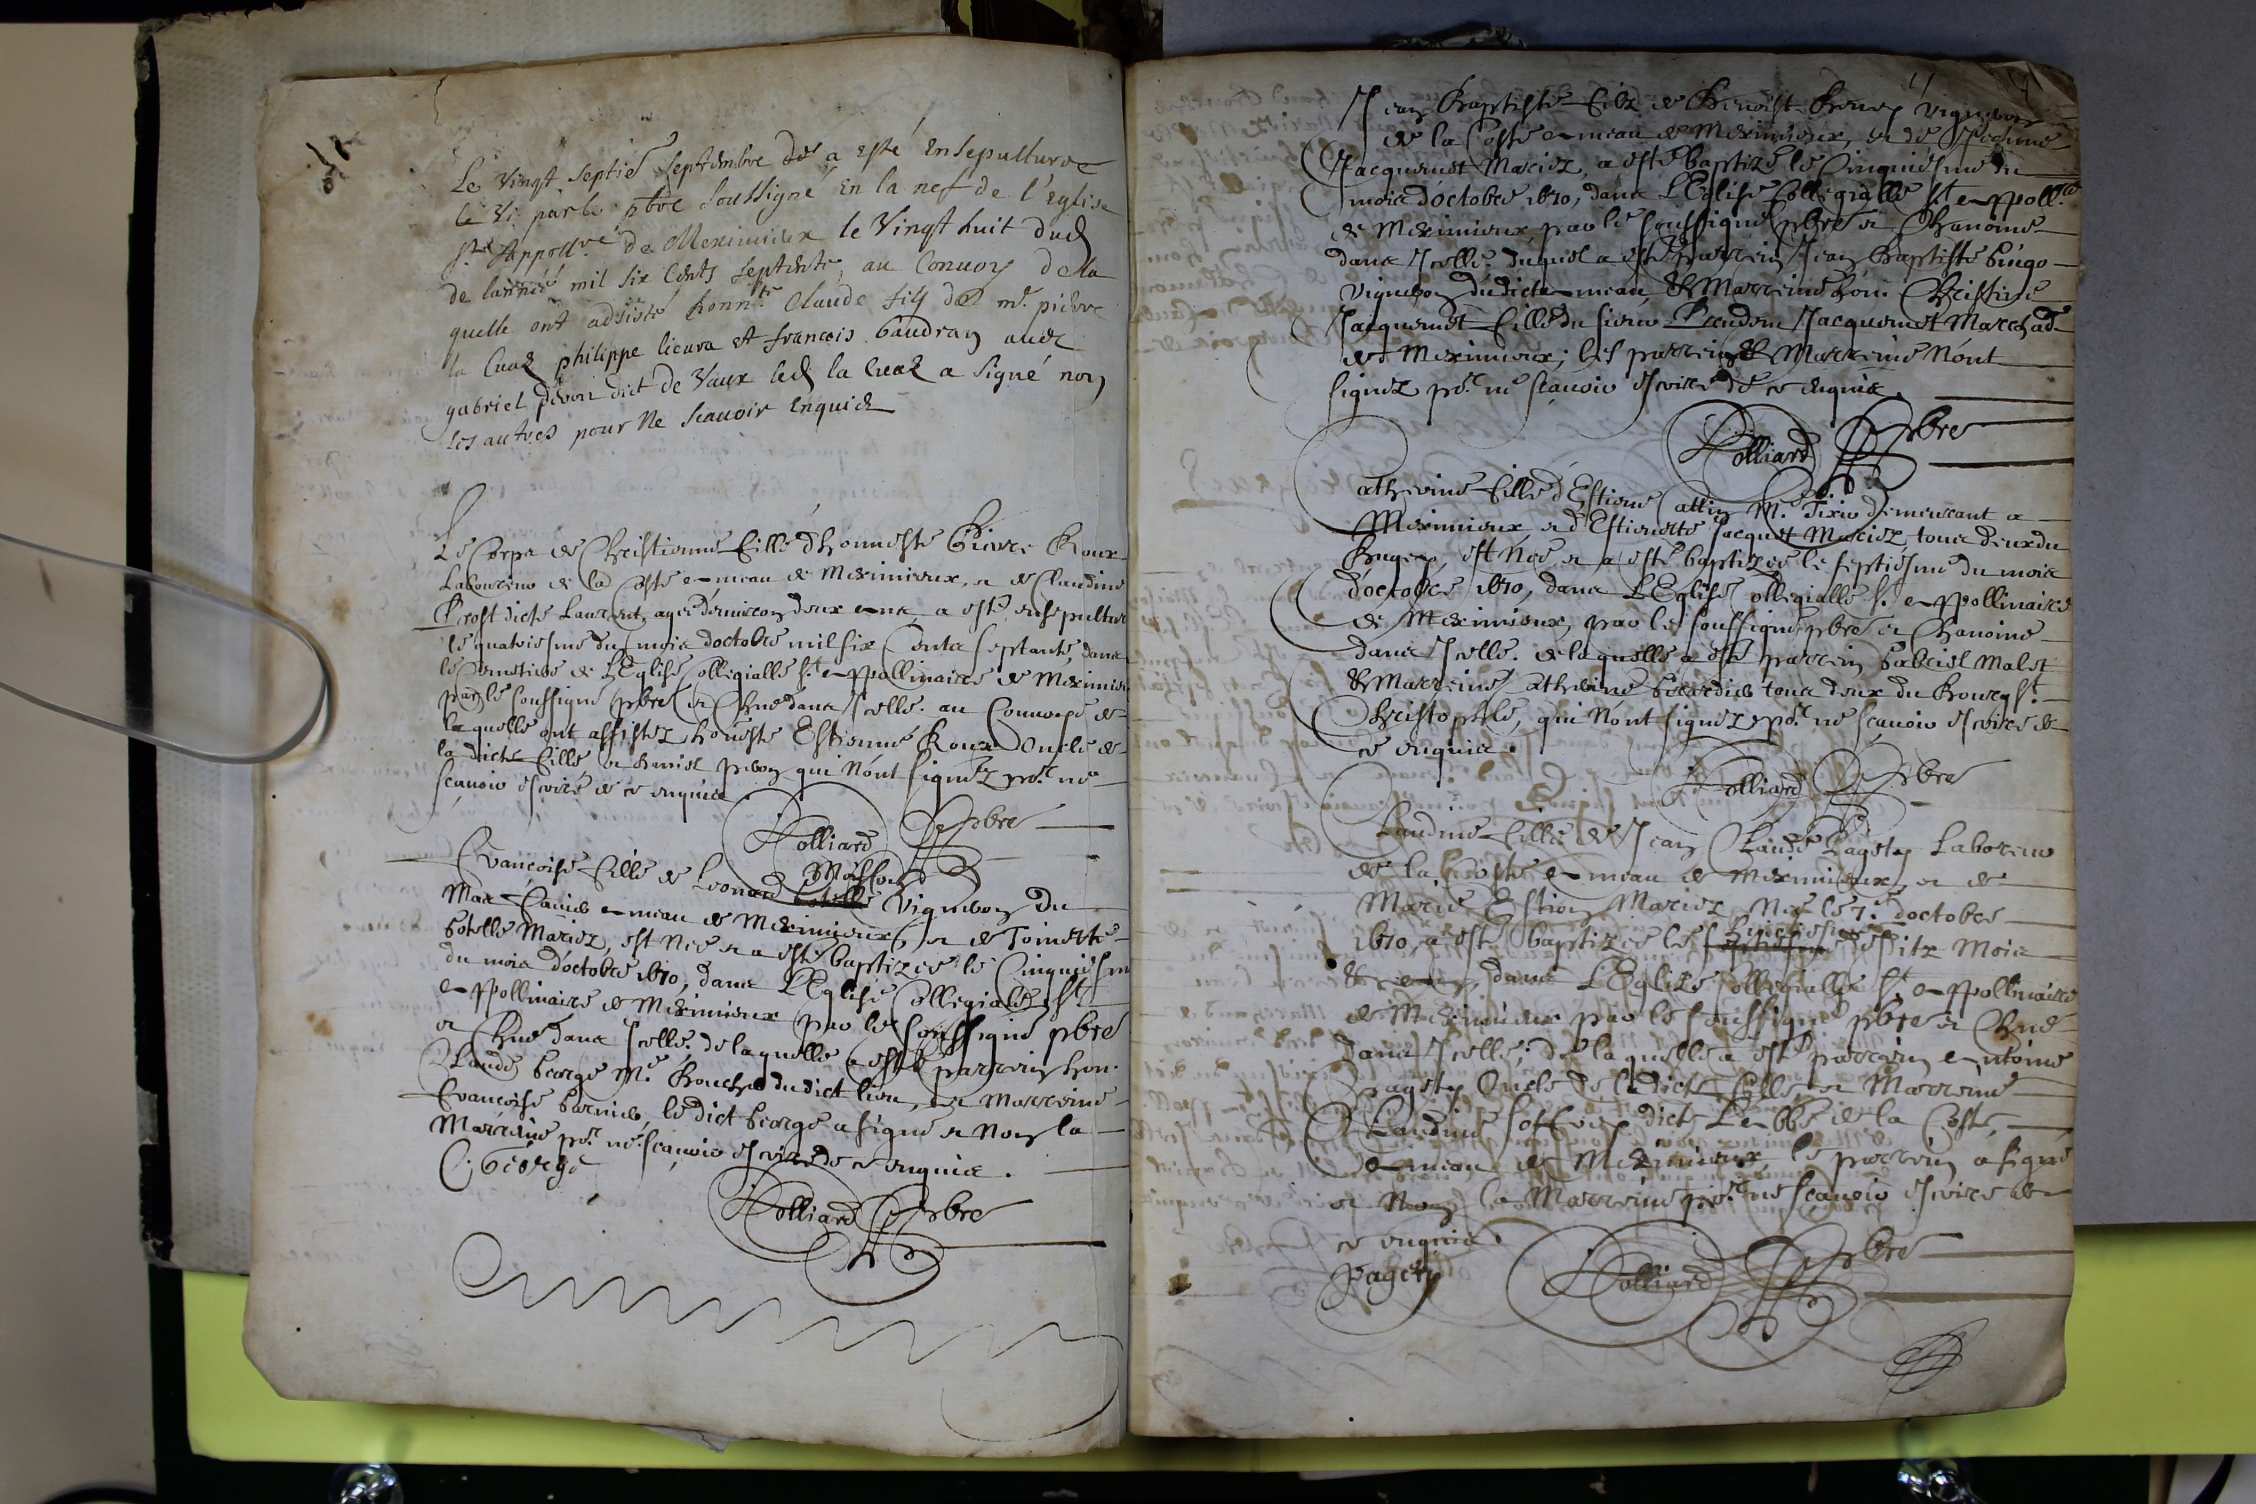 Le Vingt septie septembre a esté ensepulturée
le Vi par le pbre soussigné en la nef de l'eglise
de Meximieux le Vingt huit dud
de lannée mil six cents septente, au Convoy de la
quelle ont adsisté honnte Claude fils de me pierre
la philippe lieura et francois baudran avec
gabriel dict de Vaux led la a signé non
les autres pour Ne scauoir enquis
Le Corps de Christienne fille d'honneste Pierre Roux
Laboureur de la Coste hameau de Meximieux, et de Claudine
Prost dicte Laurent, agée denuiron deux ans, a esté ensepulturé
le quatriesme du mois doctobre mil six Cents septante, dans
le Cimetiere de L'Eglise Collegialle St Appollinaire de Meximieux
par le soussigné pbre et Chne dans Icelle. au Conuoy de
laquelle ont assistez honneste Estienne Roux Oncle de
la dicte fille et qui N'ont signez pr ne
scauoir escrire de ce enquis
Dolliard pbre
Francoise fille de Leonard Vigneron du
Mas hameau de Meximieux, et de Toinette
botelle Mariez, est Née et a esté baptizée le Cinquiesme
du mois d'octobre 1670, dans L'Eglise Collegialle St
Appollinaire de Meximieux par le soussigné pbre
et Chne dans Icelle. de laquelle a esté parrein hon.
Claude George Me Boucher du dict lieu, et Marreine
Francoise le dict George a signé et Non la
Marreine pr ne scauoir escrire de ce enquis.
C. George
Dolliard pbre
Jean Baptiste filz de Benoist Vigneron
de la Coste hameau de Meximieux, et de
Jacquemet Mariez, a esté baptizé le Cinquiesme du
mois d'octobre 1670, dans L'Eglise Collegialle St Appollre
de Meximieux, par le soussigné pbre et Chanoine
dans Icelle. duquel a esté parrein Jean Baptiste
Vigneron dudict hameau, & Marreine hon. Christine
Jacquemet fille du sieur Jacquemet Marchad
de Meximieux; les parrein & Marreine N'ont
signez pr ne scauoir escrire de ce enquis.
Dolliard pbre
Catherine fille d'Estienne Me demeurant a
Meximieux et d'Estiennette Jacquet Mariez, tous deux du
Bugey, est Née et a esté baptizée le septiesme du mois
d'octobre 1670, dans L'Eglise Collegialle St Appollinaire
de Meximieux, par le soussigné pbre et Chanoine
dans Icelle. de laquelle a esté parrein Gabriel Malet
& Marreine Catherine tous deux du Bourg St
Christophle, qui N'ont signez pr ne scauoir escrire de
ce enquis.
Dolliard pbre
Claudine fille de Jean Claude Pagety Laboreur
de la Coste hameau de Meximieux, et de
Marie Mariez Née le 7e doctobre
1670, a esté baptizée le mois
& an, dans L'Eglise Collegialle St Appollinaire
de Meximieux par le soussigné pbre et Chne
dans Icelle; de laquelle a esté parrein Antoine
Pagety Oncle de ladicte fille et Marreine
Claudine dicte L'abbé de la Coste,
hameau de Meximieux, le parrein a signé
et Non la Marreine pr ne scauoir escrire de
ce enquis.
Pagety
Dolliard pbre